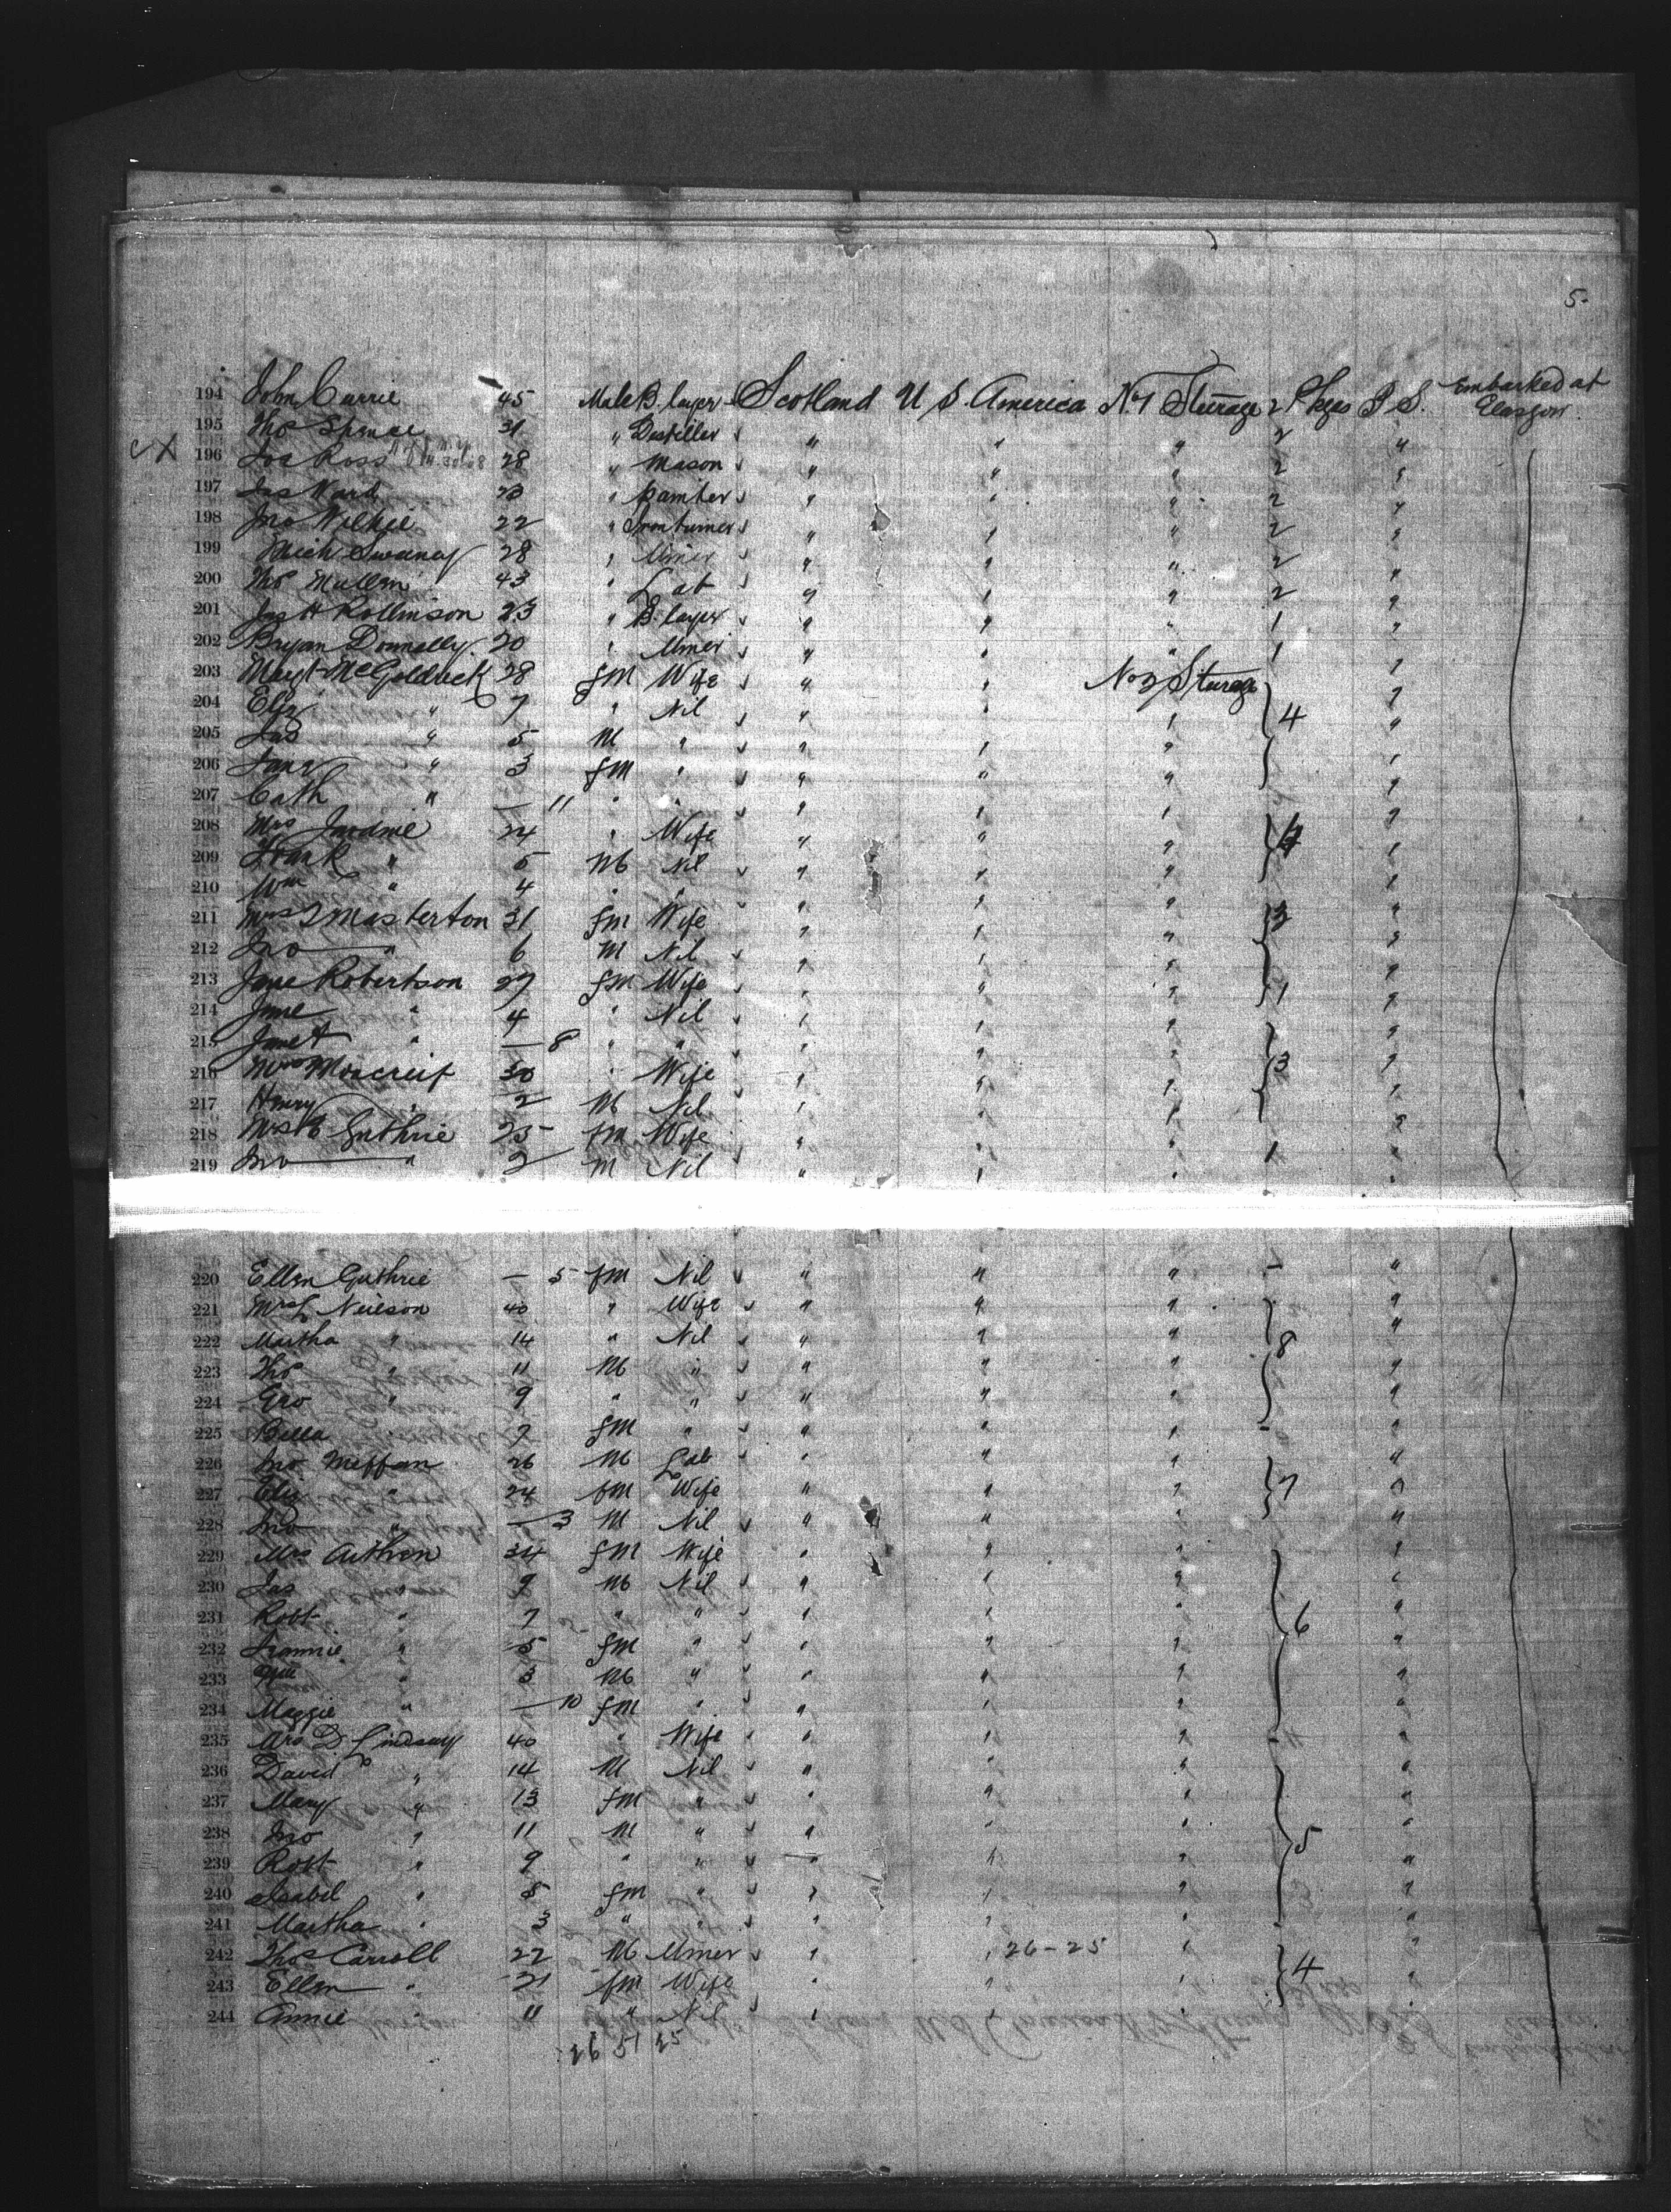 5-
194 John Currie 45 Male B. layer Scotland U S. America No 1 Steerage 2 Pkges P S. Embarked at Glasgow.
195 Thos Spence 31 " Distiller " " " 2 "
196 Jos Ross 28 " Mason " " " 2 "
197 Jas Ward 23 " Painter " " " 2 "
198 Jno Wilkie 22 " Iron turner " " " 2 "
199 Mich Sweeney 28 " Miner " " " 2 "
200 Thos Mullen 43 " Lab " " " 2 "
201 Jas H Rollinson 23 " B. layer " " " 1 "
202 Bryan Donnelly 20 " Miner " " " 1 "
203 Margt McGoldrick 28 fm Wife " " No 2 Sterage "
204 Eliz " 7 " Nil " " " 4 "
205 Jas " 5 M " " " " "
206 Jane " 3 fm " " " " "
207 Cath " — 11 " " " " " "
208 Mrs Jardine 24 " Wife " " " 4 "
209 Frank " 5 M Nil " " " "
210 Wm " 4 " " " " " "
211 Mrs Masterton 31 fm Wife " " " 3 "
212 Jno " 6 M Nil " " " "
213 Jane Robertson 27 fm Wife " " " 1 "
214 Jane " 4 " Nil " " " "
215 Janet " — 8 " " " " " "
216 Mrs Moncreif 30 " Wife " " " 3 "
217 Henry " 2 M Nil " " " "
218 Mrs E Guthrie 25 fm Wife " " " 1 "
219 Jno " 2 M Nil " " " "
220 Ellen Guthrie — 5 fm Nil " " " — "
221 Mrs L Neilson 40 " Wife " " " "
222 Martha " 14 " Nil " " " 8 "
223 Thos " 11 M " " " " "
224 Geo " 9 " " " " " "
225 Bella " 7 fm " " " " "
226 Jno Meffan 26 M Lab " " " "
227 Eliz " 24 fm Wife " " " 7 "
228 Jno " — 3 M Nil " " " "
229 Mrs Aitken 34 fm Wife " " " "
230 Jas " 9 M Nil " " " "
231 Robt " 7 " " " " " 6 "
232 " 5 fm " " " " "
233 Wm " 3 M " " " " "
234 Maggie " — 10 fm " " " " "
235 Mrs D Lindsay 40 " Wife " " " "
236 David " 14 M Nil " " " "
237 Mary " 13 fm " " " " "
238 Jno " 11 M " " " " 5 "
239 Robt " 9 " " " " " "
240 Isabel " 5 fm " " " " "
241 Martha " 3 " " " " " "
242 Thos Carroll 22 M Miner " " 26-25 " "
243 Ellen " 21 fm Wife " " " 4 "
244 Annie " 11 " Nil " " " "
26 51 25